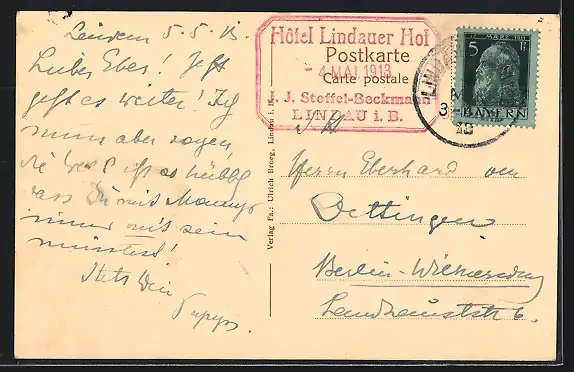 Lindau 5.5.13.
Lieber Eber! Jetzt
geht es weiter! Ich
muss aber sagen,
die Welt ist so
dass Du mit
immer mit sein
müsstest!
Stets Dein
Papa
Hôtel Lindauer Hof
Postkarte
- 4 MAI 1913
Carte postale
J. Stoffel-Beckmann
LINDAU i. B.
Verlag Fa.: Ulrich Broeg, Lindau i. B.
12. MÄRZ 1911
5 Pf
BAYERN
LINDAU
MAI
13
Herrn Eberhard von
Oettingen
Berlin-Wilmersdorf
Landhausstr 6.